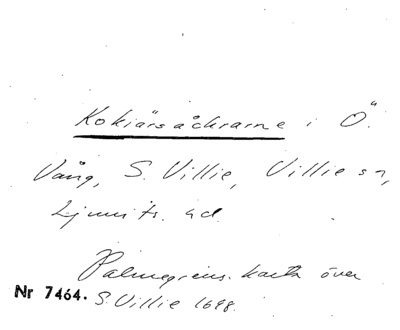 Kokiärsåckrarne i Ö.
Vång, S. Villie, Villie sn,
Ljunits hd
Palmgrens karta över
Nr 7464. S. Villie 1698.